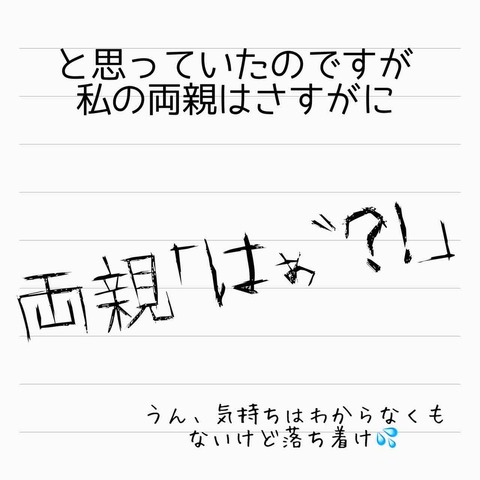 と思っていたのですが
私の両親はさすがに
両親「はぁ゛?!」
うん、気持ちはわからなくも
ないけど落ち着け💦